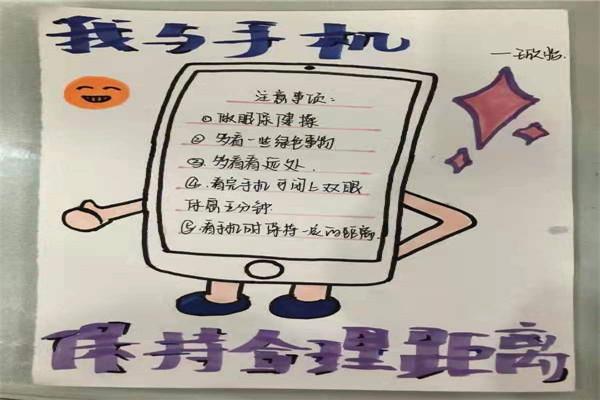 我与手机
注意事项：
①做眼保健操
②多看一些绿色事物
③多看看远处.
④.看完手机可闭上双眼
休息五分钟
⑤.看手机时保持一定的距离.
保持合理距离